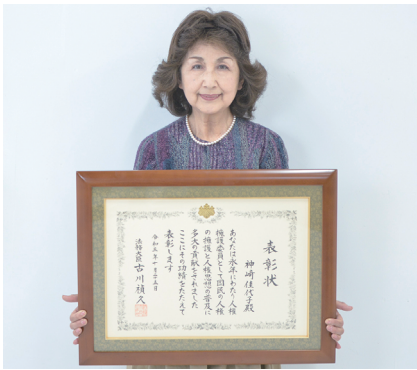 表彰状
神崎佳代子殿
あなたは永年にわたり人権
擁護委員として国民の人権
の擁護と人権思想の普及に
多大の貢献をされました
ここにその功績をたたえて
表彰します
法務大臣 古川禎久